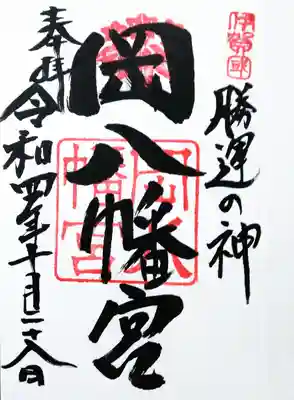 伊賀國
勝運の神
岡八幡宮
岡八幡宮
奉拝
令和四年十月二十八日